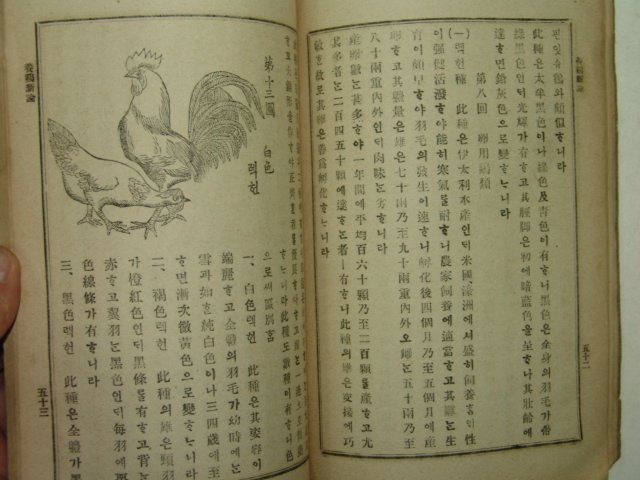 養鷄新論
鷄와 類似ᄒᆞ니라
此種은 太牟黑色이나 綠色及靑色이 有ᄒᆞ니 黑色은 全身의 羽毛가 帶
綠黑色인ᄃᆡ 光輝가 有ᄒᆞ고 其脛脚은 初에 暗藍色을 呈ᄒᆞ나 其壯齡에
達ᄒᆞ면 鉛灰色으로 變ᄒᆞᄂᆞ니라
第八回 卵用鷄類
(一)렉헌種 此種은 伊太利本產인ᄃᆡ 米國濠洲에서 盛히 飼養ᄒᆞᄂᆞ니 性
이 强健活潑ᄒᆞ야 能히 寒氣를 耐ᄒᆞ니 農家飼養에 適當ᄒᆞ고 其雛ᄂᆞᆫ 生
育이 頗早ᄒᆞ야 羽毛의 發生이 速ᄒᆞ니 孵化後四個月乃至五個月에 產
卵ᄒᆞ고 其體量은 雄은 七十兩乃至九十兩重內外오 雌ᄂᆞᆫ 五十兩乃至
八十兩重內外인ᄃᆡ 肉味ᄂᆞᆫ 劣ᄒᆞ니라
產卵數ᄂᆞᆫ 甚多ᄒᆞ야 一年間에 平均百六十顆乃至二百顆를 產ᄒᆞ고 尤
其多者ᄂᆞᆫ 二百四五十顆에 達ᄒᆞᄂᆞᆫ 者ㅣ 有ᄒᆞ니 此種의 雄은 交接에 巧
敏ᄒᆞᆫ 故로 其卵은 善爲孵化ᄒᆞᄂᆞ니라
五十二
養鷄新論
第十三圖 白色 렉헌
ᄒᆞᄂᆞ니라 此種도 數種이 有ᄒᆞ니 色
으로써 區別홈
一、白色렉헌 此種은 其姿容이
端麗ᄒᆞ고 全體의 羽毛가 幼時에ᄂᆞᆫ
雪과 如ᄒᆞᆫ 純白色이나 三四歲에 至
ᄒᆞ면 漸次微黃色으로 變ᄒᆞᄂᆞ니라
二、褐色렉헌 此種의 雄은 頸羽
가 橙紅色인ᄃᆡ 黑條를 有ᄒᆞ고 背ᄂᆞᆫ
赤ᄒᆞ고 翼羽ᄂᆞᆫ 黑色인ᄃᆡ 每羽에 栗
色線條가 有ᄒᆞ니라
三、黑色렉헌 此種은 全體가 黑
五十三